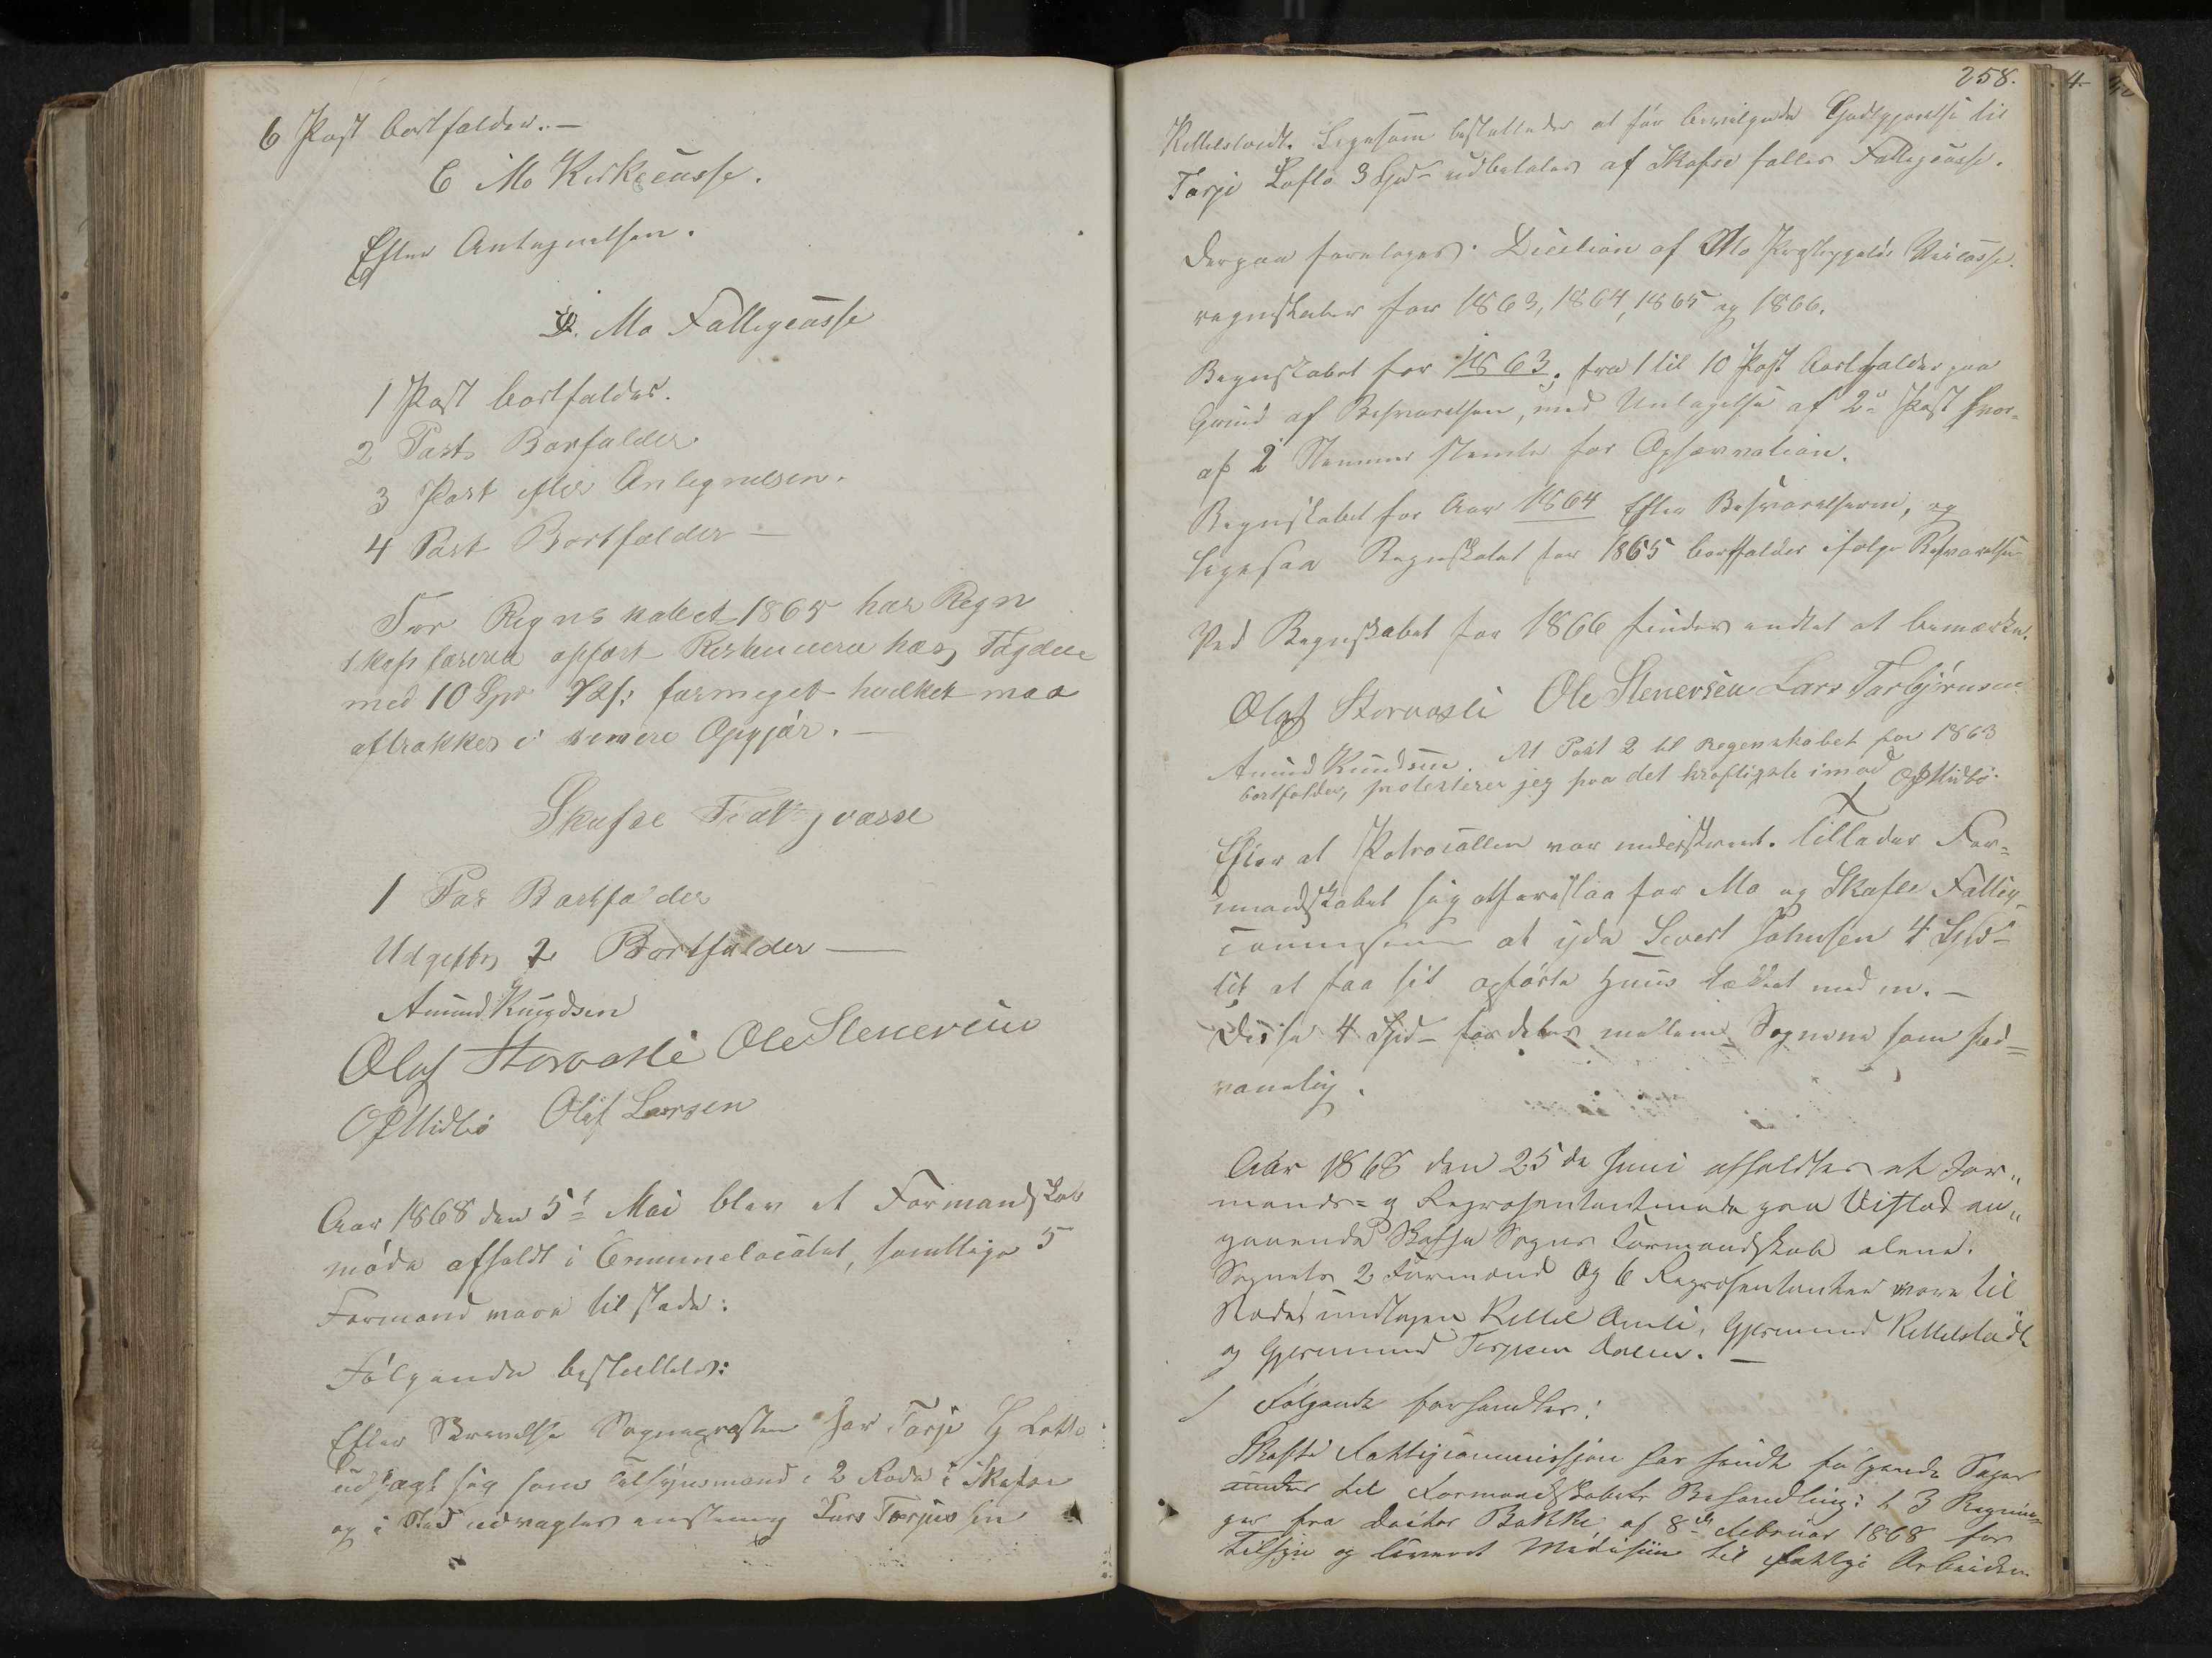 6 Post Bortfalder. —
C Mo Kirkecasse.
Efter Antegnelsen.
D. Mo Fattigcasse
1 Post bortfalder.
2 Post Borfalder.
3 Post efter Antegnelsen.
4 Post Bortfalder —
For Regnskabet 1865 har Regn
skapsføreren opført Restencerne hos Fogden
med 10 Spd formeget hvilket maa
aftrækkes i Opgjør. —
Skafse Fattigcasse
1 Pos Bortfalder
Udgefter 2 Bortfalder —
Amund Knudsen
Olaf Storvasli Ole Stenersen
O Midbø Olaf Larsen
Aar 1868 den 5te Mai blev et Formandskab
møde afholdt i Communelocalet, samtlige 5
Formænd vare tilstede:
Følgende besluttedes:
Efter Skrivelse Sognepresten har Torje G Lofto
udsagt sig som Tilsynsmand i 2 Rode i Skafse
og i Sted udvagtes enstemig Lars Torjussen
258.
Kittelstvedt. Ligesom besluttedes at før bevilgede Godtgjørelse til
Torje Lofto 3 Spd udbetales af Skafse falles Fattigcasse.
Derpaa foretoges Decition af Mo Prestegjelds Veicasse.
regnskaber for 1863, 1864, 1865 og 1866.
Regnskabet for 1863, fra 1 til 10 Post bortfalder paa
Grund af Besvarelsen, med Untagelse af 2den Post hvor-
af 2 Stemmer stemte for Opservation.
Regnskabet for Aar 1864 Efter Besvarelserne, og
ligesaa Regnskabet for 1865 bortfalder ifølge Besvarelsen
Ved Regnskabet for 1866 findes endtet at bemærke.
Olaf Storvasli Ole Stenersen Lars Torbjørnsen
Amund Knudsen. At Post 2 til Regenskabet for 1863
bortfalder, protesterer jeg paa det kraftigste imod O Midbø.
Efter at Protocollen var underskrevet. tillader For-
mandskabet sig atforeslaa for Mo og Skafse Fattig-
commisson at yde Sivert Johnsen 4 Spd
til at faa sit opførte Huus tækket med m. —
Disse 4 Spd fordeles mellem Sognene som sed-
vanelig.
Aar 1868 den 25de Juni afholdtes et For-
mands- og Representantmøde paa Vistad an-
gaaende Skafse Sogns Formandskab alene.
Sognets 2 Formænd og 6 Representanter vare til
stede undtagen Kittel Amli, Gjermund Kittelstedt
og Gjermund Torjesen Dalen. —
1 Følgende forhandles:
Skafse Fattigcommission har sendt følgende Sager
til Formandskabets Behandling: 1 3 Regnin-
ger fra Doctor Bakke af 8de Februar 1868 for
Tilsyn og leveret Medisiin til fattige Arbeider